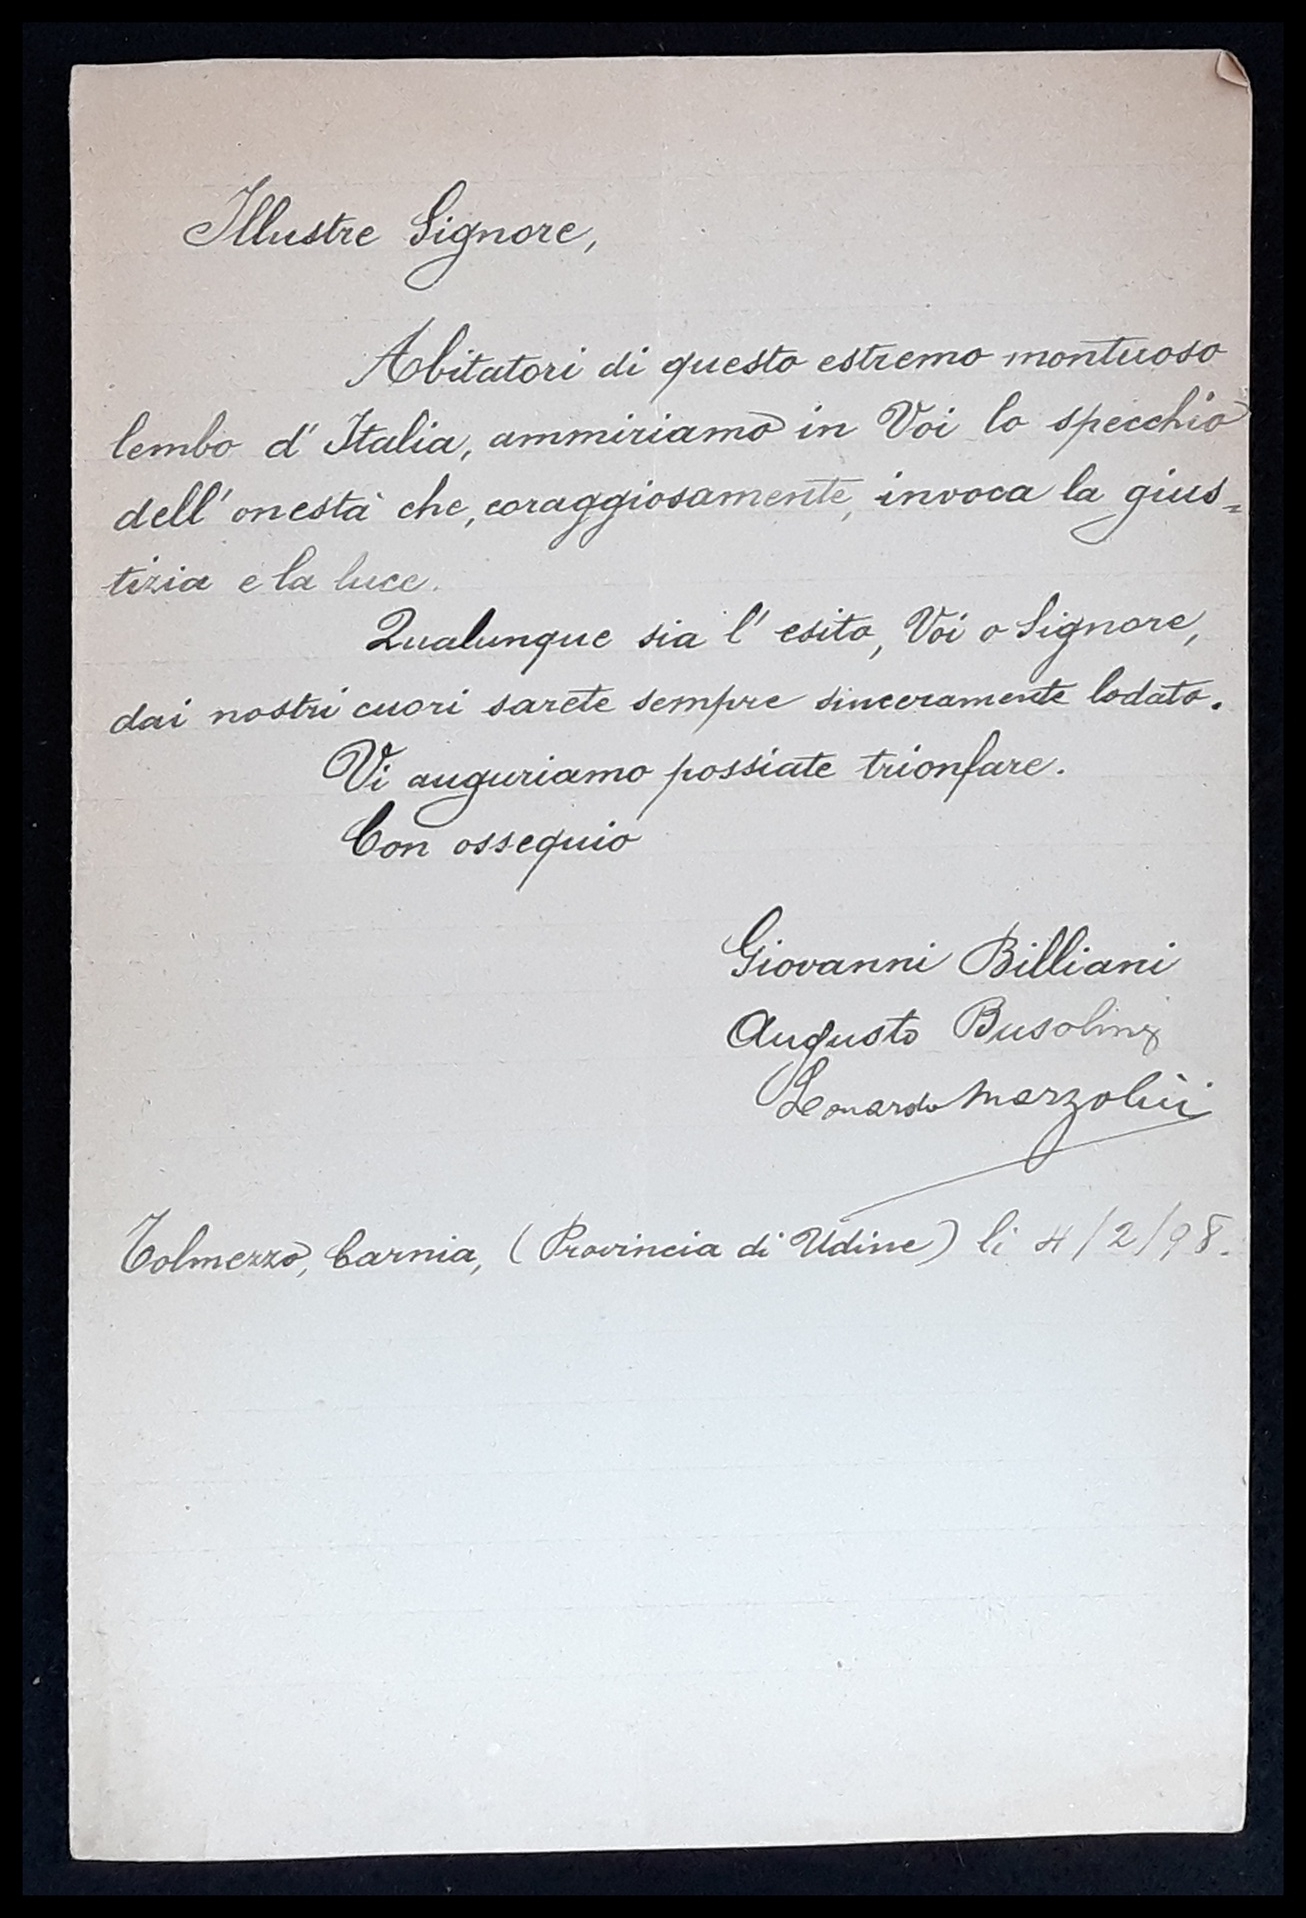 Illustre Signore,
Abitatori di questo estremo montuoso
lembo d' Italia, ammiriamo in Voi lo specchio
dell' onestà che, coraggiosamente, invoca la gius=
tizia e la luce.
Qualunque sia l' esito, Voi o Signore,
dai nostri cuori sarete sempre sinceramente lodato.
Vi auguriamo possiate trionfare.
Con ossequio
Giovanni Billiani
Augusto Busolini
Leonardo Marzolini
Tolmezzo, Carnia, (Provincia di Udine) li 4/2/98.